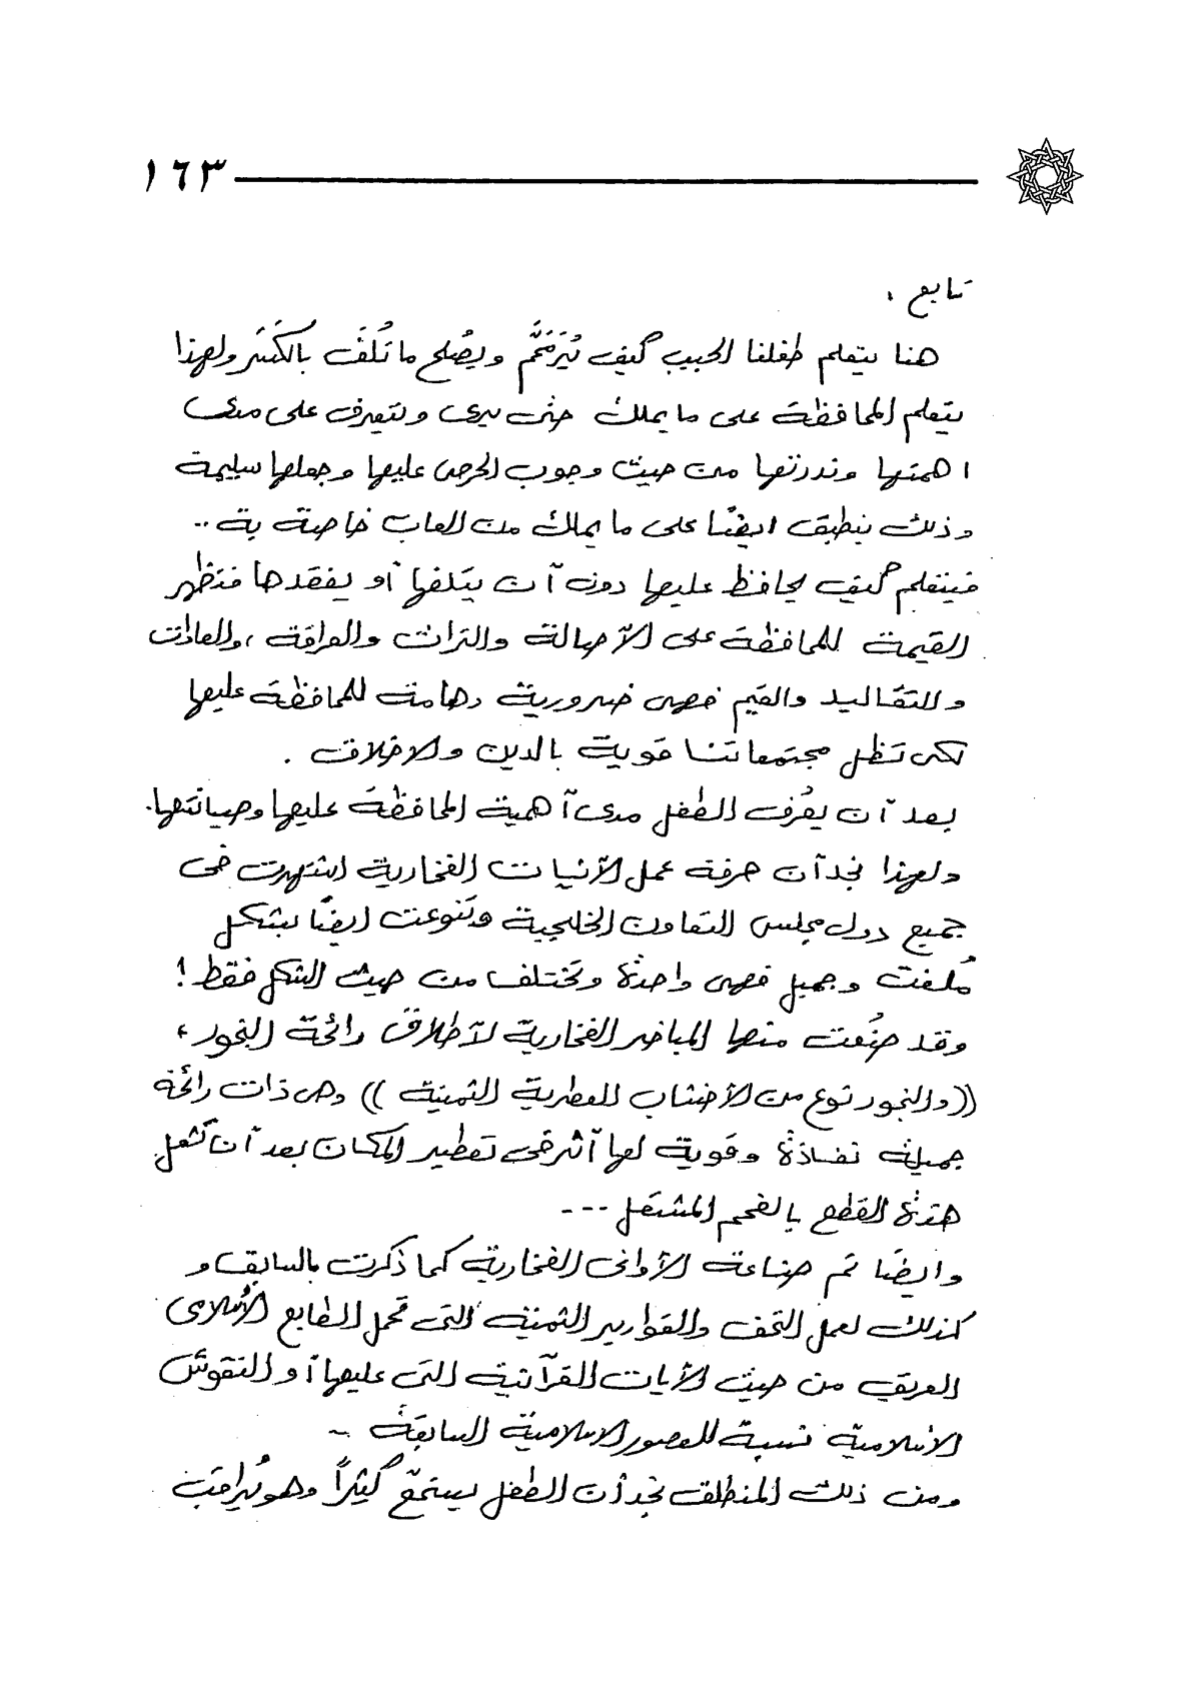 ١٦٣
تابع .
هنا يتعلم طفلنا الحبيب كيف يُرَمَّم ويُصلح ما تُلفَ بالكَسَر ولهذا
يتعلم المحافظة على ما يملك حتى يرى ويتعرف على مدى
اهمتها وندرتها من حيث وجوب الحرص عليها وجعلها سليمة
وذلك ينطبق ايضًا على ما يملك من العاب خاصة بة ..
فيتعلم كيف يحافظ عليها دون آن يتلفها أو يفقدها فتظهر
القيمة للمحافظة على الآصالة والتراث والعراقة ، والعادات
والتقاليد والقيم فهى ضرورية وهامة للمحافظة عليها
لكى تظل مجتمعاتنا قوية بالدين والاخلاق .
بعد آن يعُرف الطفل مدى آهمية المحافظة عليها وصيانتها .
ولهذا نجد آن حرفة عمل الآنيات الفخارية اشتهرت فى
جميع دول مجلس التعاون الخليجية وتنوعت ايضًا بشكل
مُلفت وجميل فهى واحدة وتختلف من حيث الشكل فقط !
وقد صنُعت منها المباخر الفخارية لآطلاق رائحة البخور ،
((والبخور نوع من الأخشاب العطرية الثمنية )) وهى ذات رائحة
جميلة نفاذة وقوية لها آثر فى تعطير المكان بعد آن تُشعل
هذة القطع بالفحم المشتعل ---
وايضًا تم صناعة الأوانى الفخارية كما ذكرت بالسابق و
كذلك لعمل التحف والقوارير الثمنية التى تحمل الطابع الأسلامى
العريق من حيث الأيات القرآنية التى عليها أو النقوش
الاسلامية نسبة للعصور الاسلامية السابقة ..
ومن ذلك المنطلق نجد أن الطفل يستمتع كثيراً وهو يُراقب